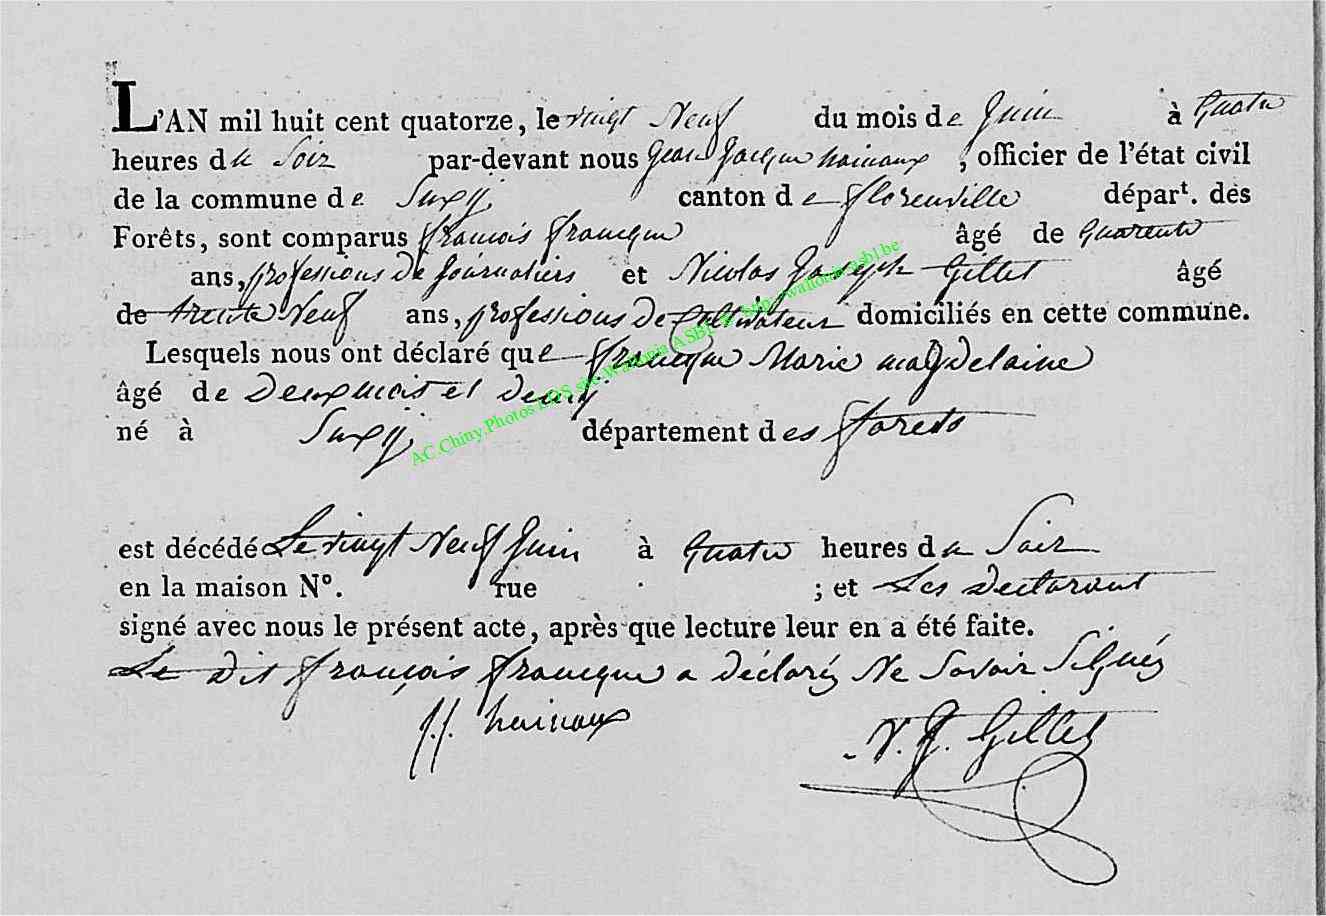 L'AN mil huit cent quatorze, le vingt Neuf du mois de Juin à Quatre
heures du Soir par-devant nous Jean Jacque hainaux, officier de l'état civil
de la commune de Suxÿ canton de florenville départ. des
Forêts, sont comparus françois francque âgé de Quarente
ans, professions de Journaliers et Nicolas Joseph Gillet âgé
de trente Neuf ans, professions De Cultivateur domiciliés en cette commune.
Lesquels nous ont déclaré que francque Marie magdelaine
âgé de Deux mois et demÿ
né à Suxÿ département des forets
est décédé Le vingt Neuf Juin à Quatre heures du Soir
en la maison N°. rue ; et Les Declarant
signé avec nous le présent acte, après que lecture leur en a été faite.
Le dit françois francque a déclaréz Ne Savoir Signéz
J.J. hainaux N. J. Gillet
AC.Chiny.Photos site Wallonia ASBL http://wallonia-asbl.be